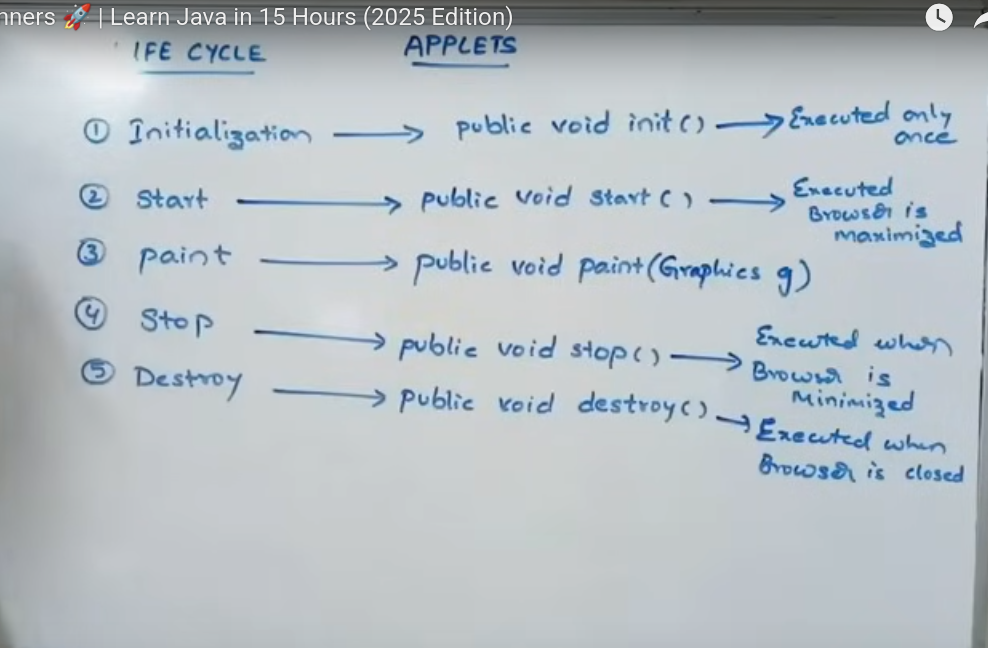 nners 🚀 | Learn Java in 15 Hours (2025 Edition)
IFE CYCLE APPLETS
① Initialization → public void init() → Executed only
once
② Start → public void start() → Executed
Browser is
maximized
③ paint → public void paint(Graphics g)
④ Stop → public void stop() → Executed when
Browser is
Minimized
⑤ Destroy → public void destroy() → Executed when
Browser is closed